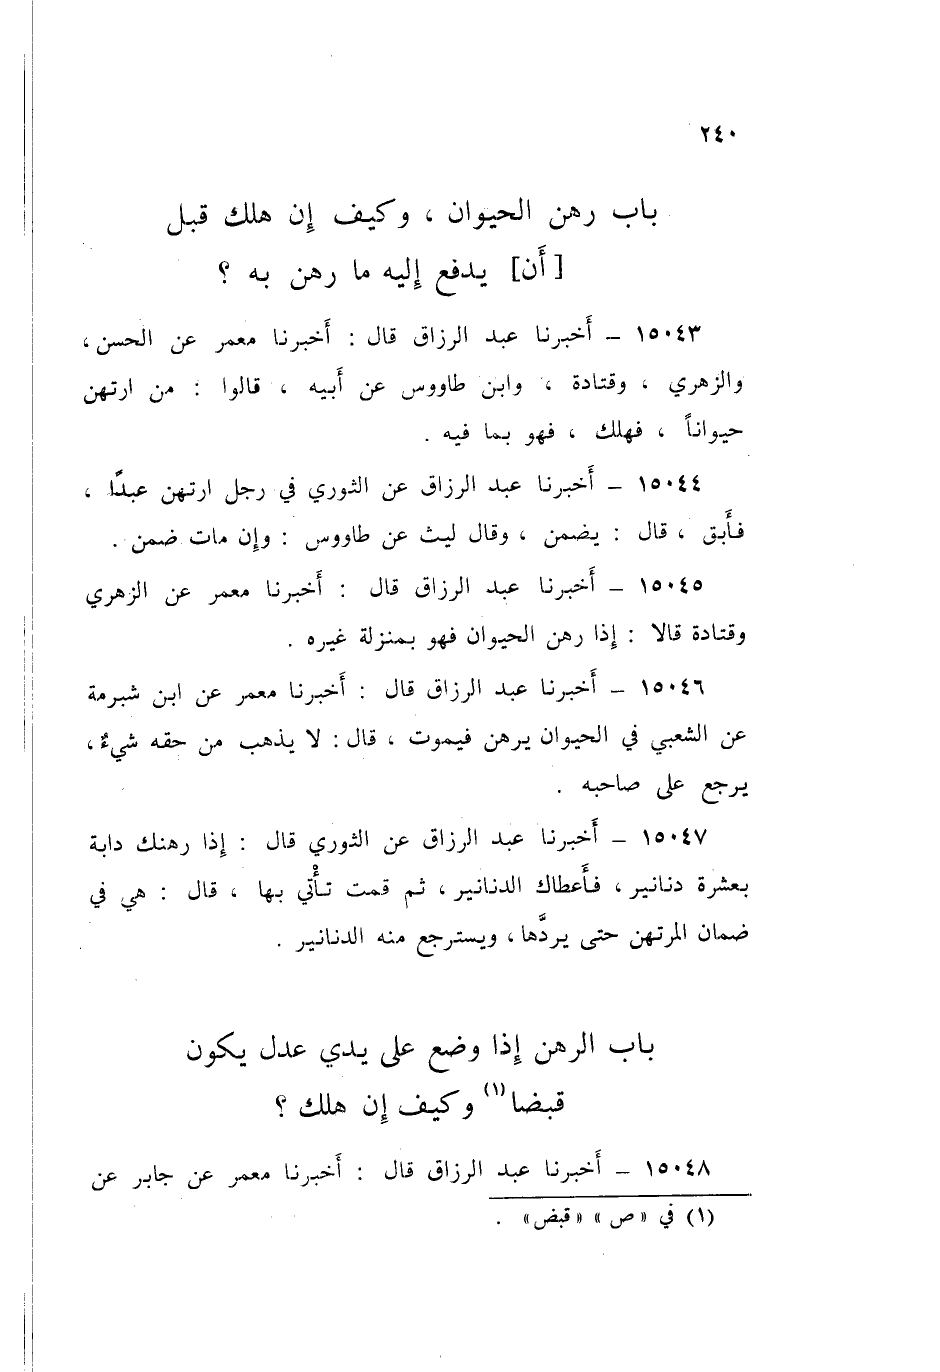 ٢٤٠
باب رهن الحيوان ، وكيف إن هلك قبل
[أَن] يدفع إليه ما رهن به ؟
١٥٠٤٣ – أَخبرنا عبد الرزاق قال : أَخبرنا معمر عن الحسن ،
والزهري ، وقتادة ، وابن طاووس عن أَبيه ، قالوا : من ارتهن
حيواناً ، فهلك ، فهو بما فيه .
١٥٠٤٤ – أَخبرنا عبد الرزاق عن الثوري في رجل ارتهن عبدًا ،
فأَبق ، قال : يضمن ، وقال ليث عن طاووس : وإن مات ضمن .
١٥٠٤٥ – أَخبرنا عبد الرزاق قال : أَخبرنا معمر عن الزهري
وقتادة قالا : إذا رهن الحيوان فهو بمنزلة غيره .
١٥٠٤٦ – أَخبرنا عبد الرزاق قال : أَخبرنا معمر عن ابن شبرمة
عن الشعبي في الحيوان يرهن فيموت ، قال : لا يذهب من حقه شيءٌ ،
يرجع على صاحبه .
١٥٠٤٧ – أَخبرنا عبد الرزاق عن الثوري قال : إذا رهنك دابة
بعشرة دنانير ، فأَعطاك الدنانير ، ثم قمت تأْتي بها ، قال : هي في
ضمان المرتهن حتى يردَّها ، ويسترجع منه الدنانير .
باب الرهن إذا وضع على يدي عدل يكون
قبضا(١) وكيف إن هلك ؟
١٥٠٤٨ – أَخبرنا عبد الرزاق قال : أَخبرنا معمر عن جابر عن
(١) في « ص » « قبض » .